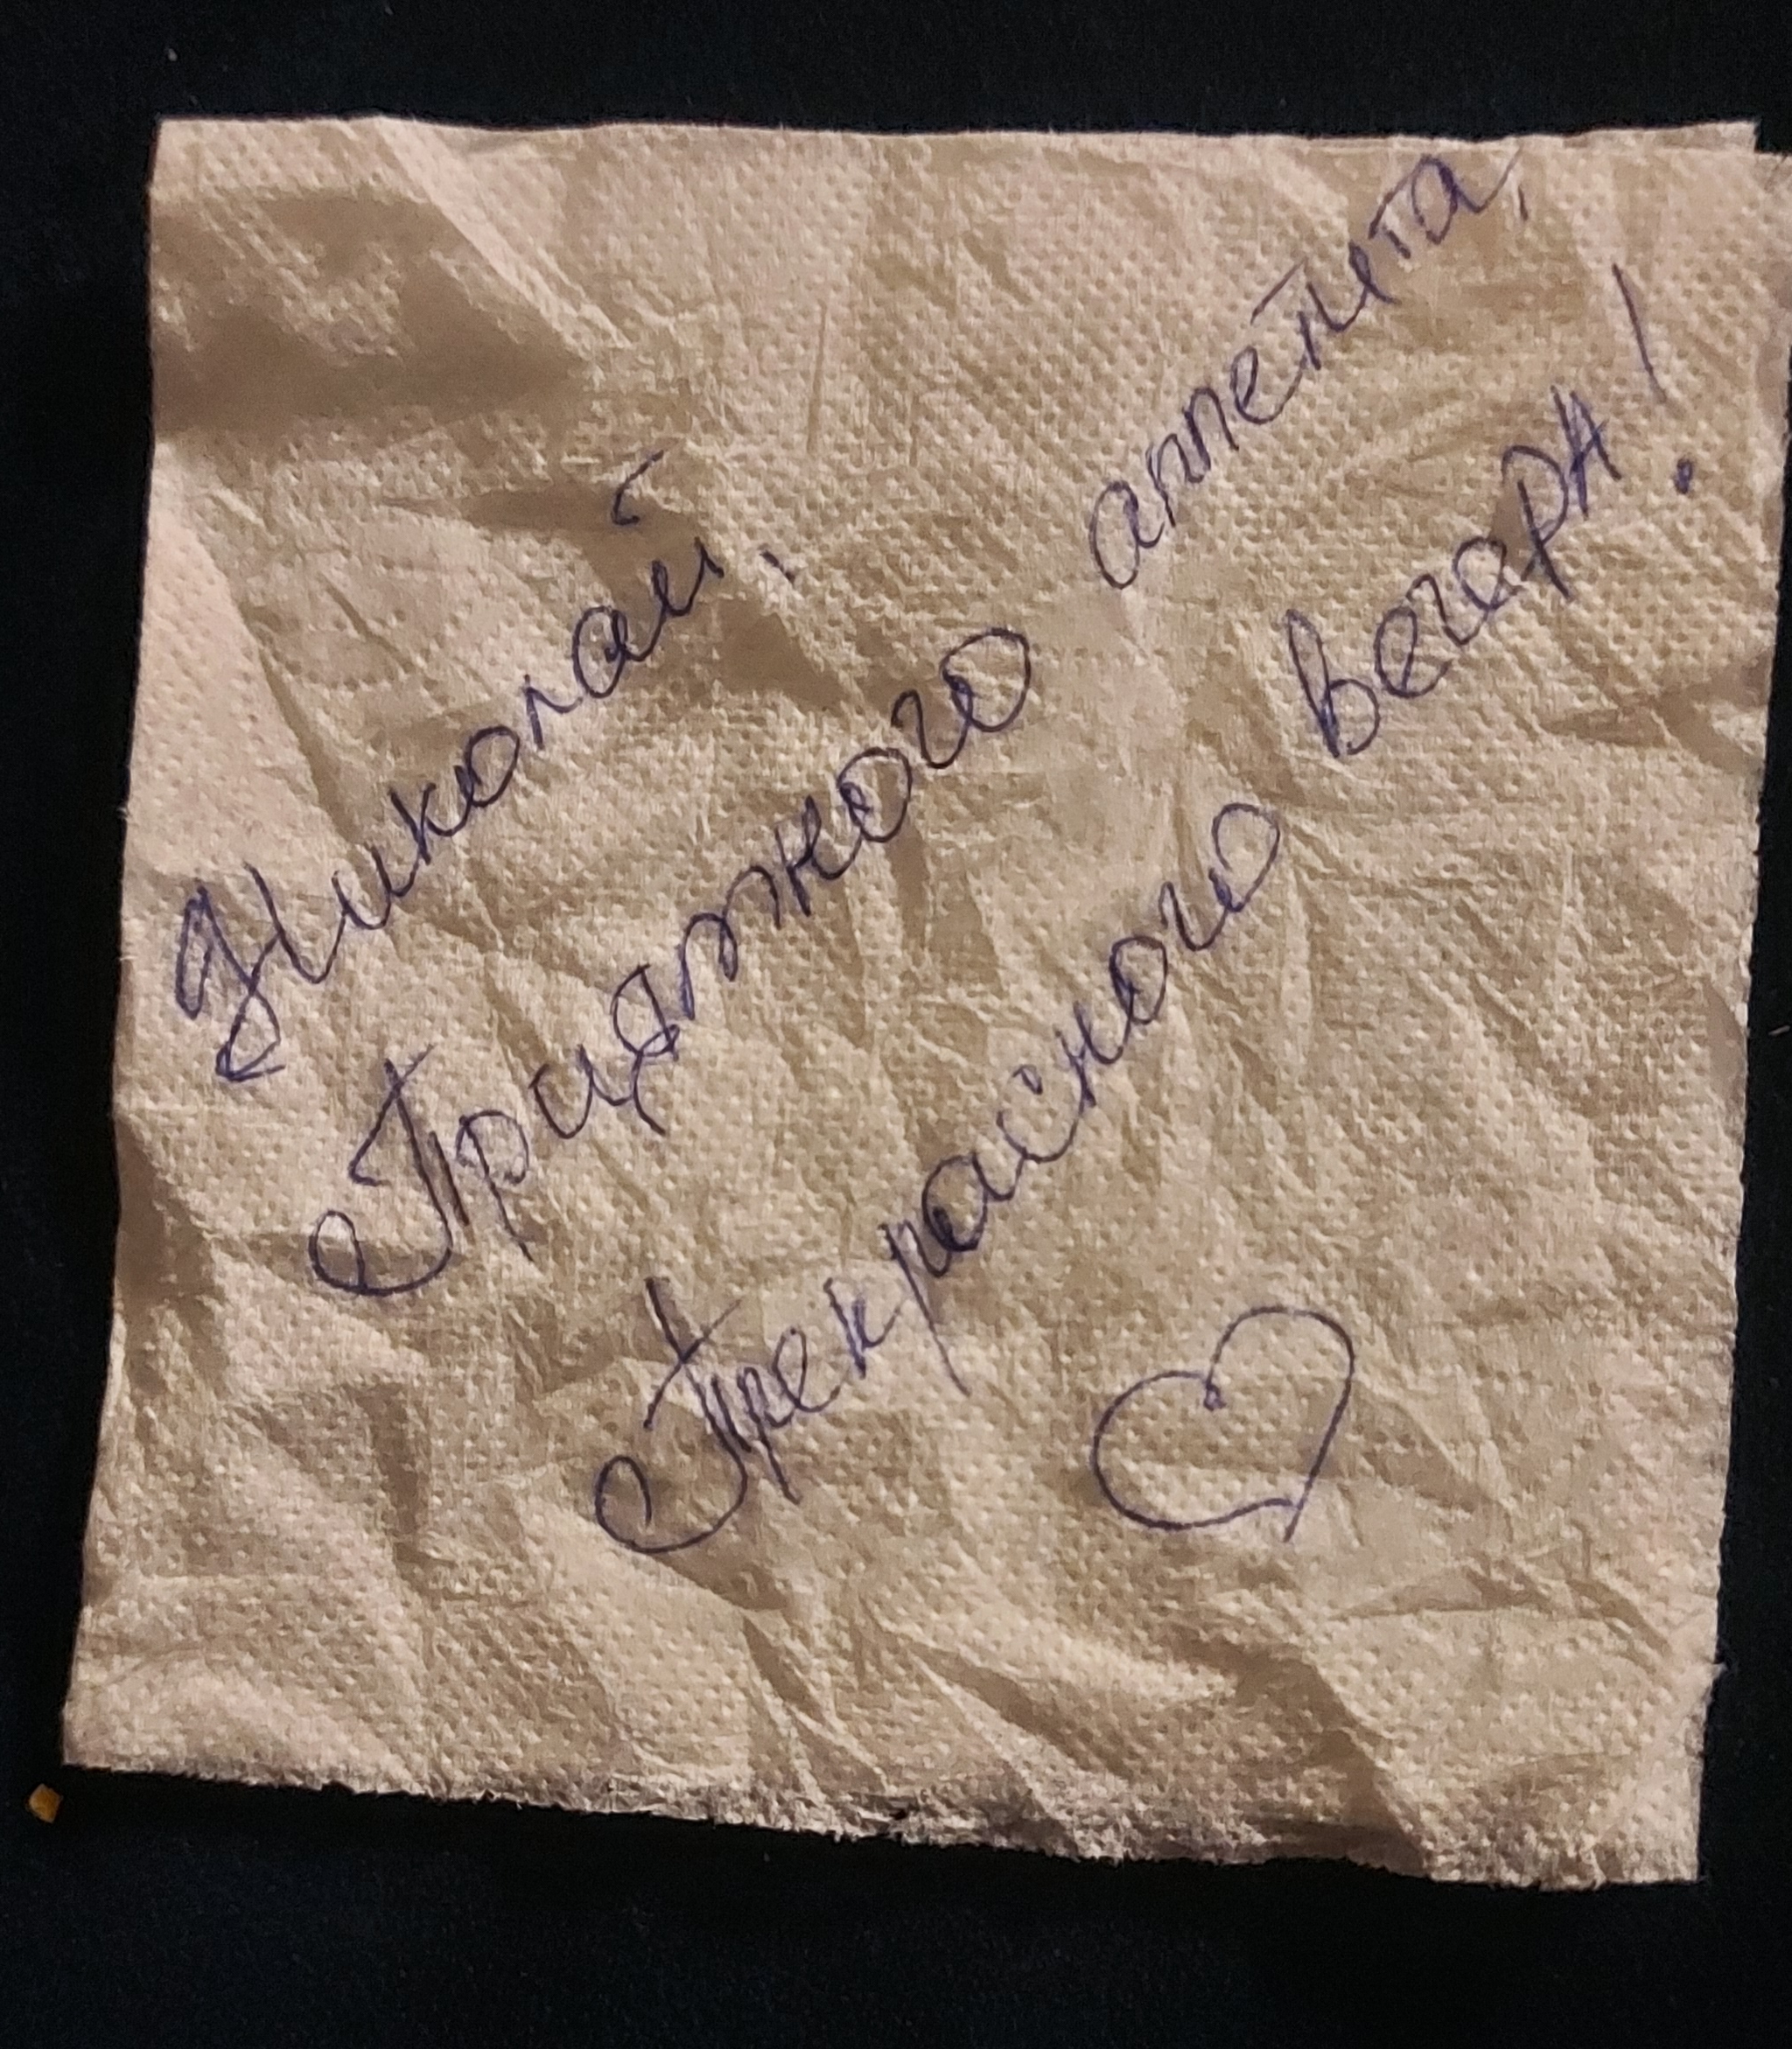 Николай,
Приятного аппетита,
Прекрасного вечера!